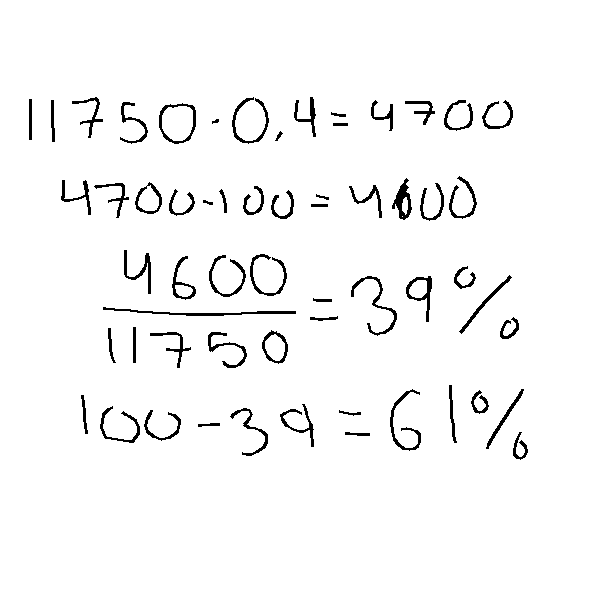 11750·0,4=4700
4700-100=4600
4600/11750=39%
100-39=61%